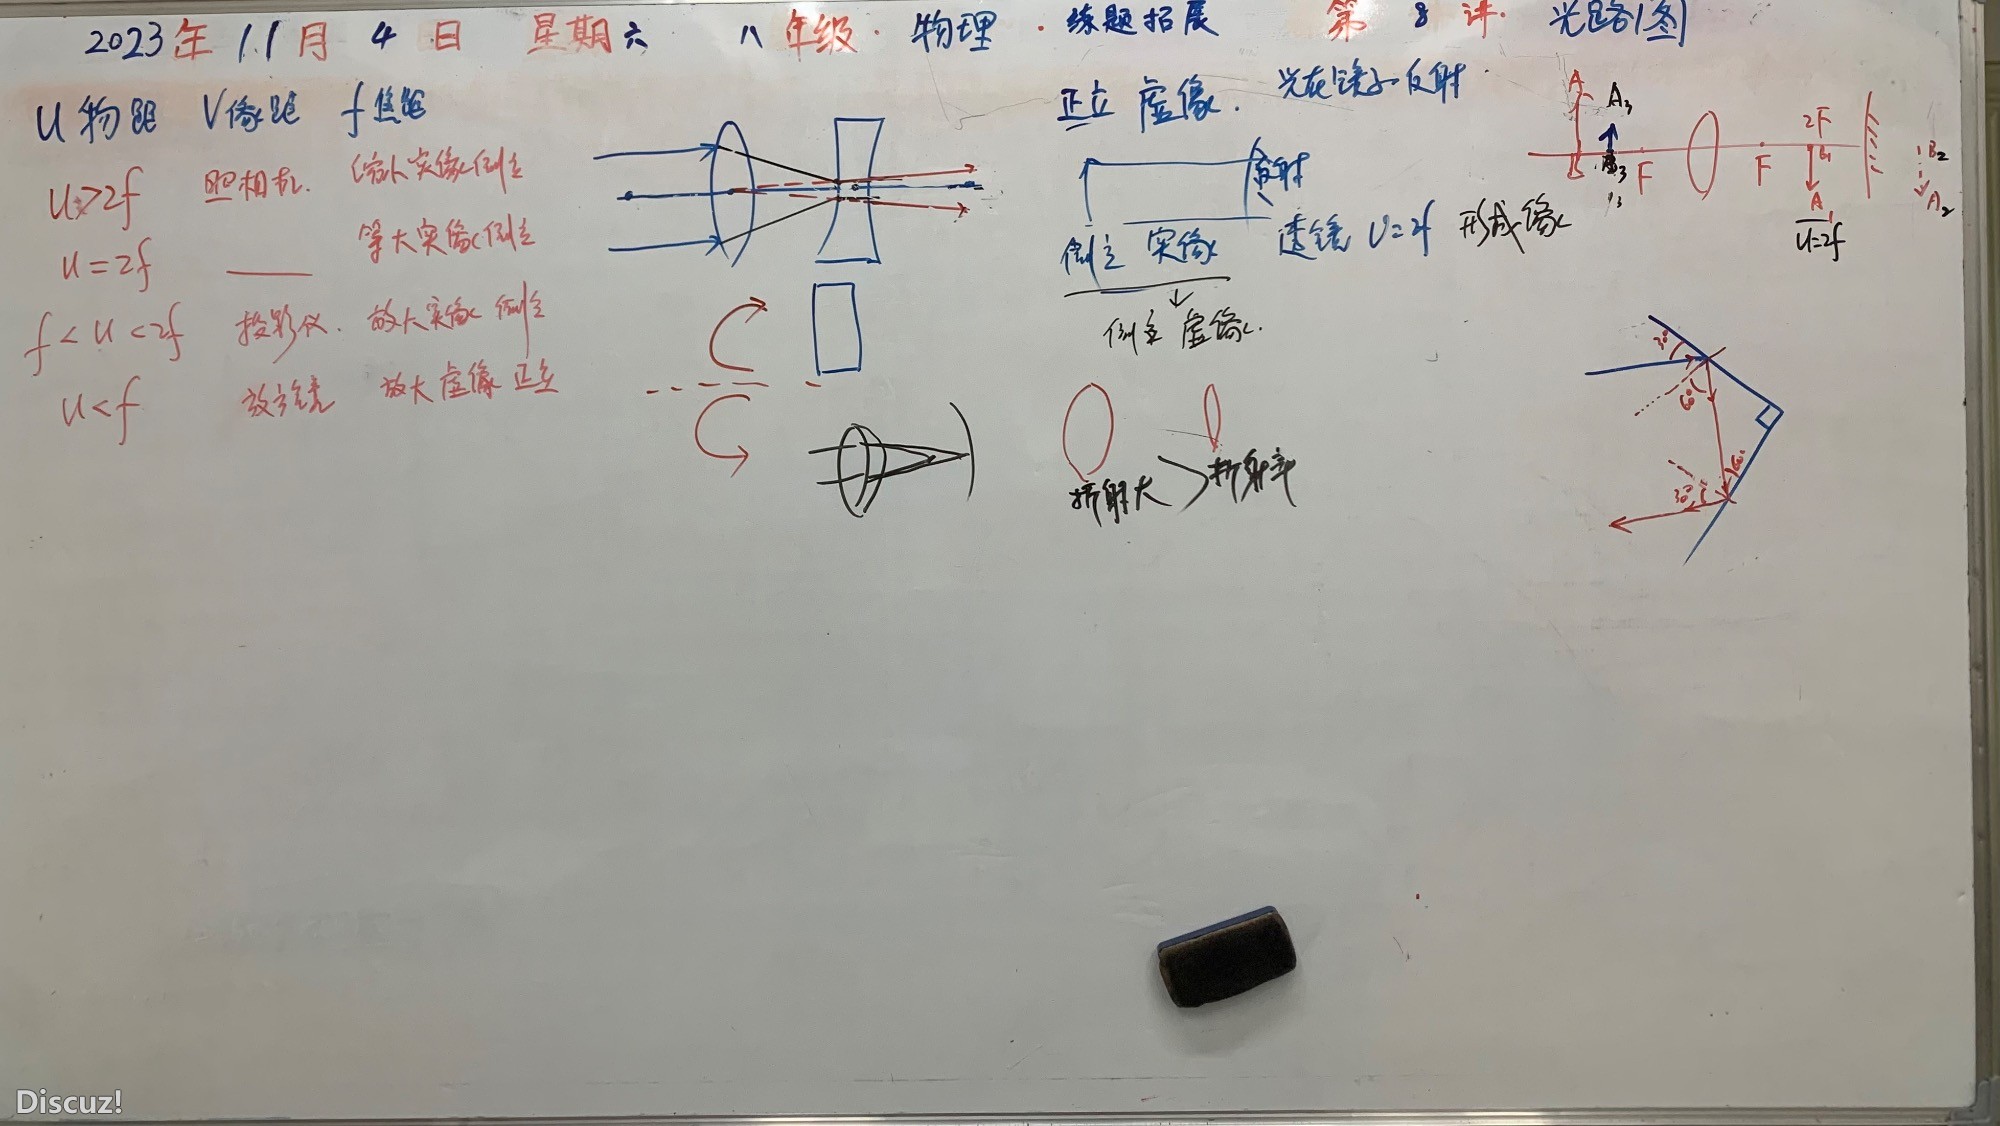 2023年 11月 4日 星期六 八年级·物理·练题拓展 第8讲·光路图
U物距 V像距 f焦距
U>2f 照相机. 缩小实像倒立
U=2f 等大实像倒立
f<U<2f 投影仪. 放大实像 倒立
U<f 放大镜 放大虚像 正立
正立 虚像. 光在镜子反射
倒立 实像 透镜 U=2f 形成像
倒立 虚像.
折射大 > 折射率
A
A₃
F
F
2F
A₁
U=2f
B₂
A₂
30°
60°
60°
30°
Discuz!